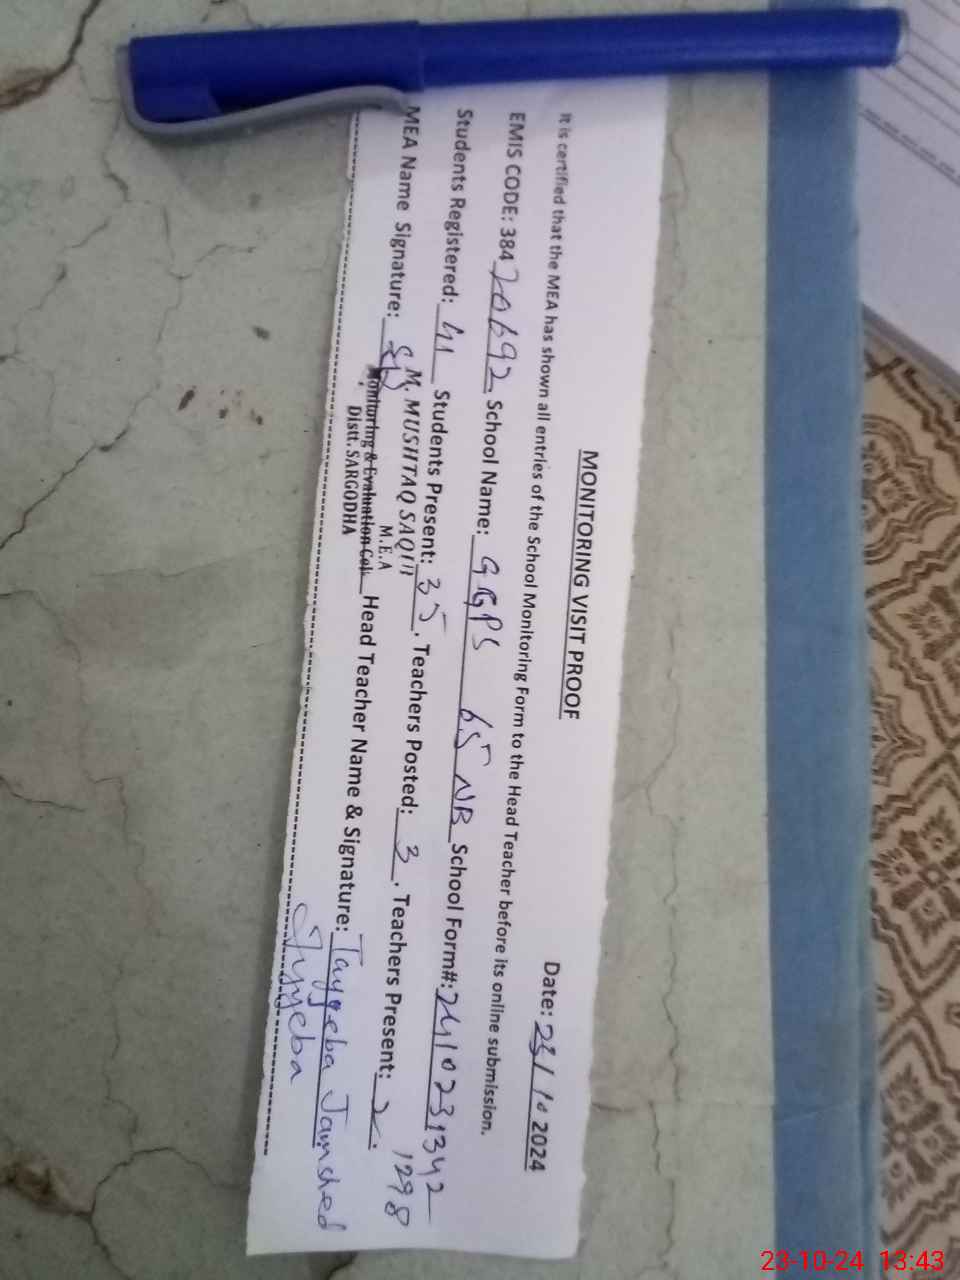 MONITORING VISIT PROOF
Date: 23/10 2024
It is certified that the MEA has shown all entries of the School Monitoring Form to the Head Teacher before its online submission.
EMIS CODE: 38420692 School Name: GGPS 65 NB School Form#: 2410231342
1298
Students Registered: 41 Students Present: 35. Teachers Posted: 3. Teachers Present: 2.
MEA Name Signature: Head Teacher Name & Signature: Tayyeba Jamshed
M. MUSHTAQ SAQIB
M.E.A
Monitoring & Evaluation Cell
Distt. SARGODHA
Tayyeba
23-10-24 13:43